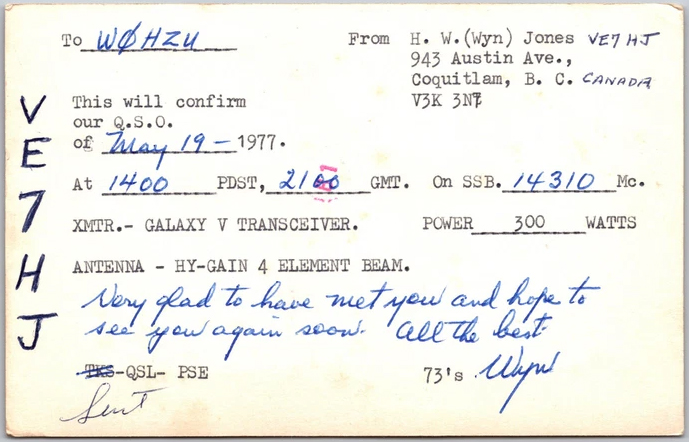 To WØHZU From H. W.(Wyn) Jones VE7HJ
943 Austin Ave.,
Coquitlam, B. C. CANADA
V3K 3N7
VE7HJ
This will confirm
our Q.S.O.
of May 19 - 1977.
At 1400 PDST, 2100 GMT. On SSB. 14310 Mc.
XMTR.- GALAXY V TRANSCEIVER. POWER 300 WATTS
ANTENNA - HY-GAIN 4 ELEMENT BEAM.
Very glad to have met you and hope to
see you again soon. All the best
TKS-QSL- PSE 73's Wyn
Sent